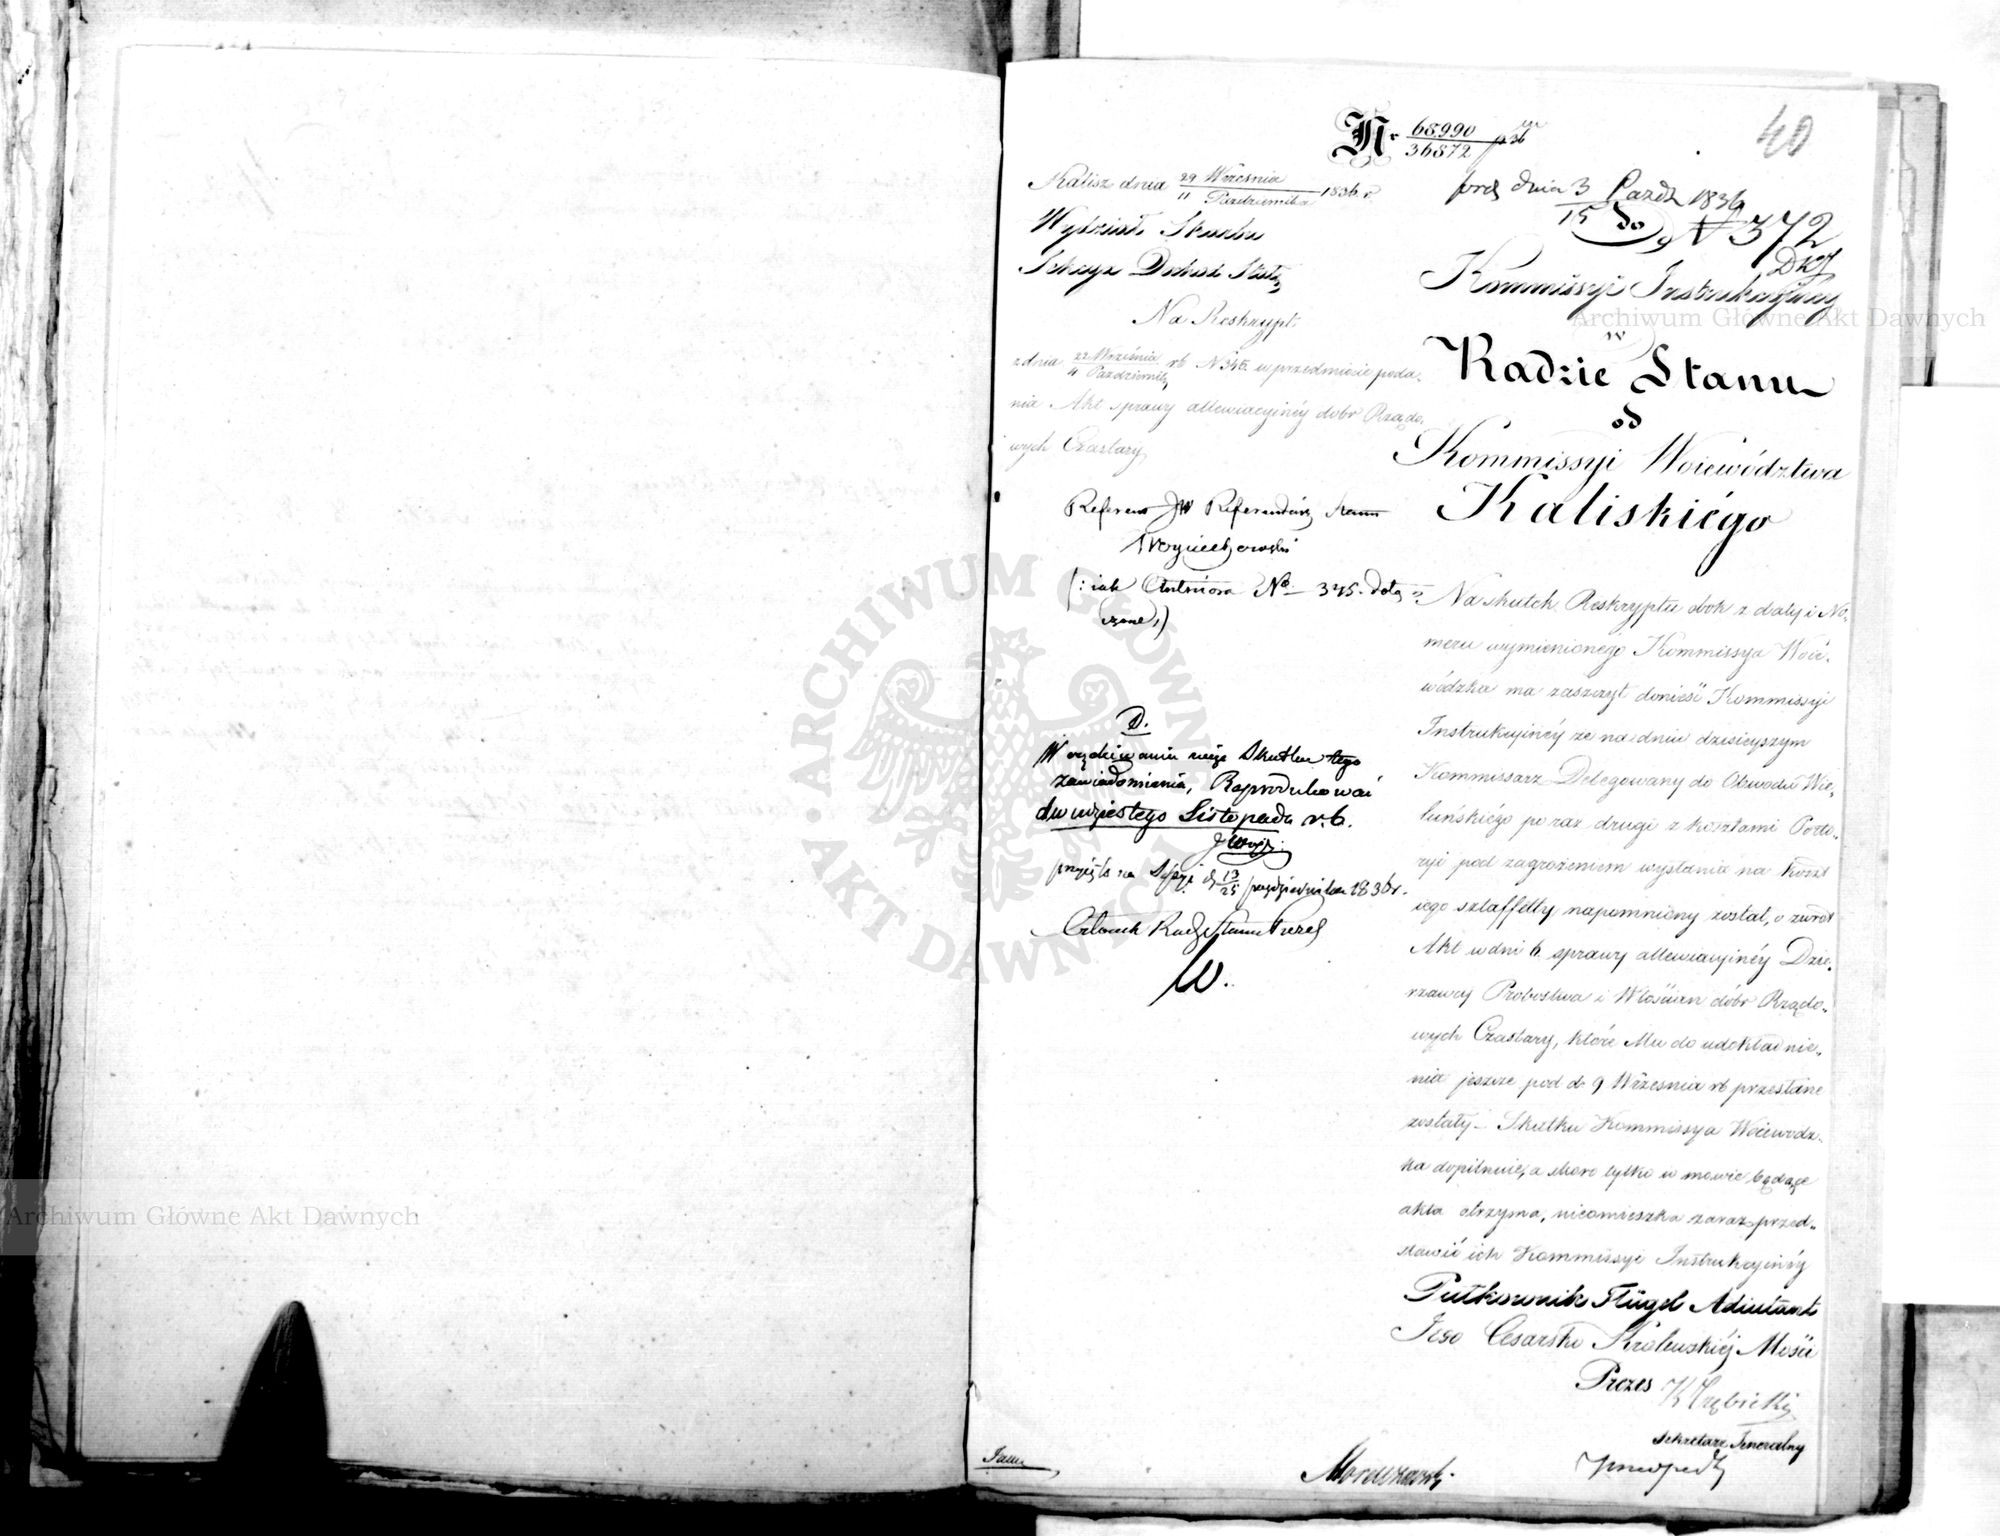 40
Nr 68990/36872 p 36
Kalisz dnia 29 Września/11 Października 1836 r.
Wydział Skarbu
Sekcya Dochod. Stał.
Na Reskrypt
z dnia 22 Września/4 Październik rb N 345 w przedmiocie poda-
nia Akt sprawy allewiacyjnéy dobr Rządo-
wych Czastary
Referent JW Referendarz Stanu
Woyciechowski
(: iak Anteriora No 345. dołą-
czone :)
D.
W oczekiwaniu więc Skutku tego
zawiadomienia, Reprodukować
dwudziestego Listopada r.b.
przyięto na Sessyi d 13/25 października 1836 r.
Członek Rady Stanu Prezes
W.
pres dnia 3/15 Paźdz 1836
N 372
Kommissyi Instrukcyiney
w
Radzie Stanu
od
Kommissyi Woiewództwa
Kaliskiégo
Na skutek Reskryptu obok z daty i Nu-
meru wymienionégo Kommissya Woie-
wódzka ma zaszczyt donieść Kommissyi
Instrukcyinéy że na dniu dzisieyszym
Kommissarz Delegowany do Obwodu Wie-
luńskiégo po raz drugi z kosztami Porto-
ryi pod zagrożeniem wysłania na koszt
iego sztaffetty napomniony został, o zwrót
Akt w dni 6 sprawy allewiacyinéy Dzie-
rzawcy Probostwa i Włościan dóbr Rządo-
wych Czastary, które Mu do udokładnie-
nia jeszcze pod d. 9 Września rb przesłane
zostały - Skutku Kommissya Woiewodz-
ka dopilnuie, a skoro tylko w mowie będące
akta otrzyma, nieomieszka zaraz przed-
stawić ich Kommissyi Instrukcyinéy
Pułkownik Flügel Adiutant
Jego Cesarsko Królewskiéj Mości
Prezes
Sekretarz Jeneralny
Archiwum Główne Akt Dawnych
Archiwum Główne Akt Dawnych
ARCHIWUM GŁÓWNE AKT DAWNYCH